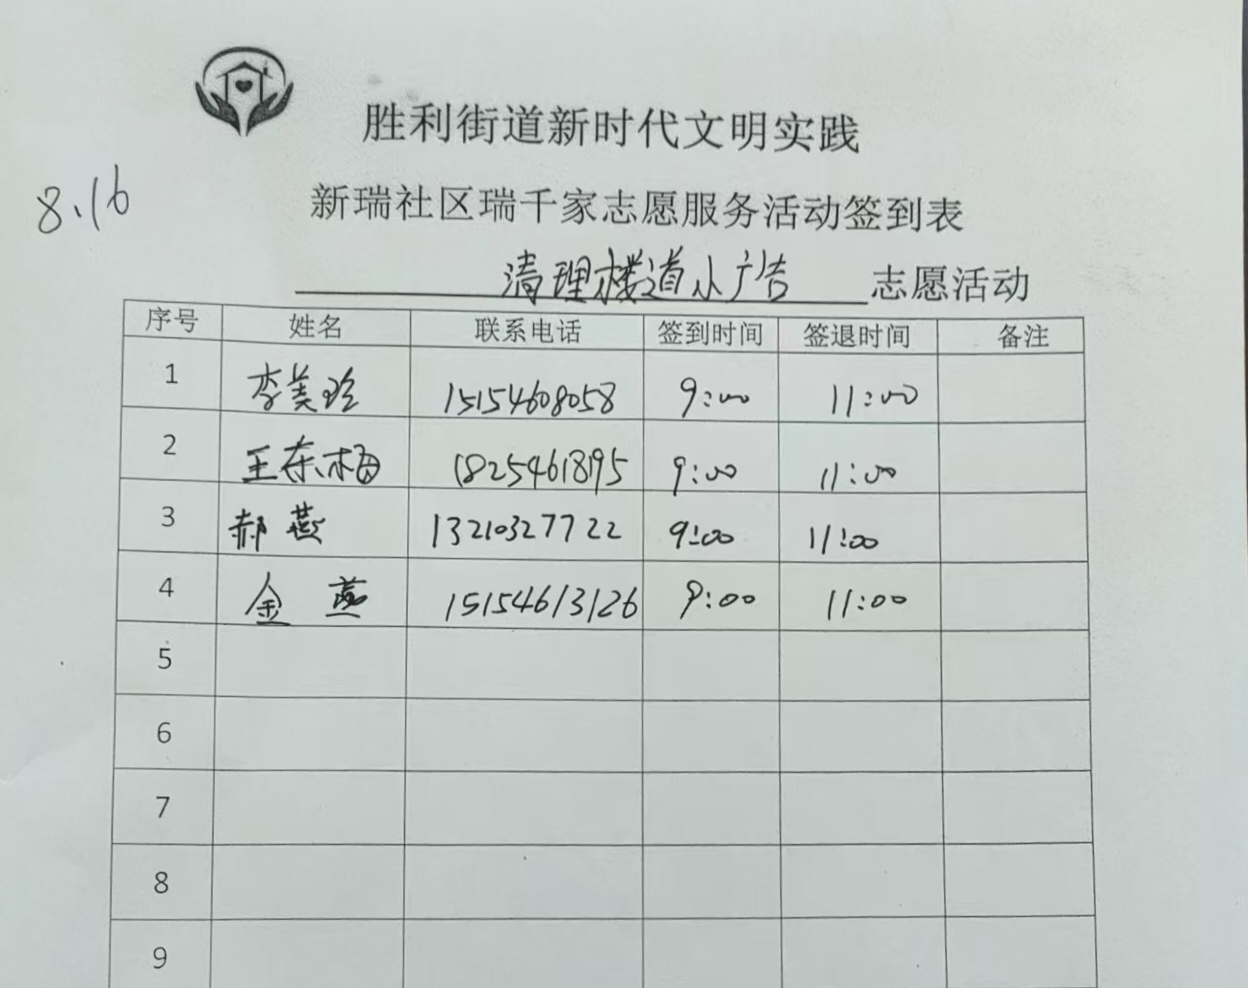 胜利街道新时代文明实践
8.16
新瑞社区瑞千家志愿服务活动签到表
清理楼道小广告 志愿活动
序号 姓名 联系电话 签到时间 签退时间 备注
1 李美玲 15154608058 9:00 11:00
2 王东梅 18254618195 9:00 11:00
3 郝燕 13210327722 9:00 11:00
4 金燕 15154613126 9:00 11:00
5
6
7
8
9